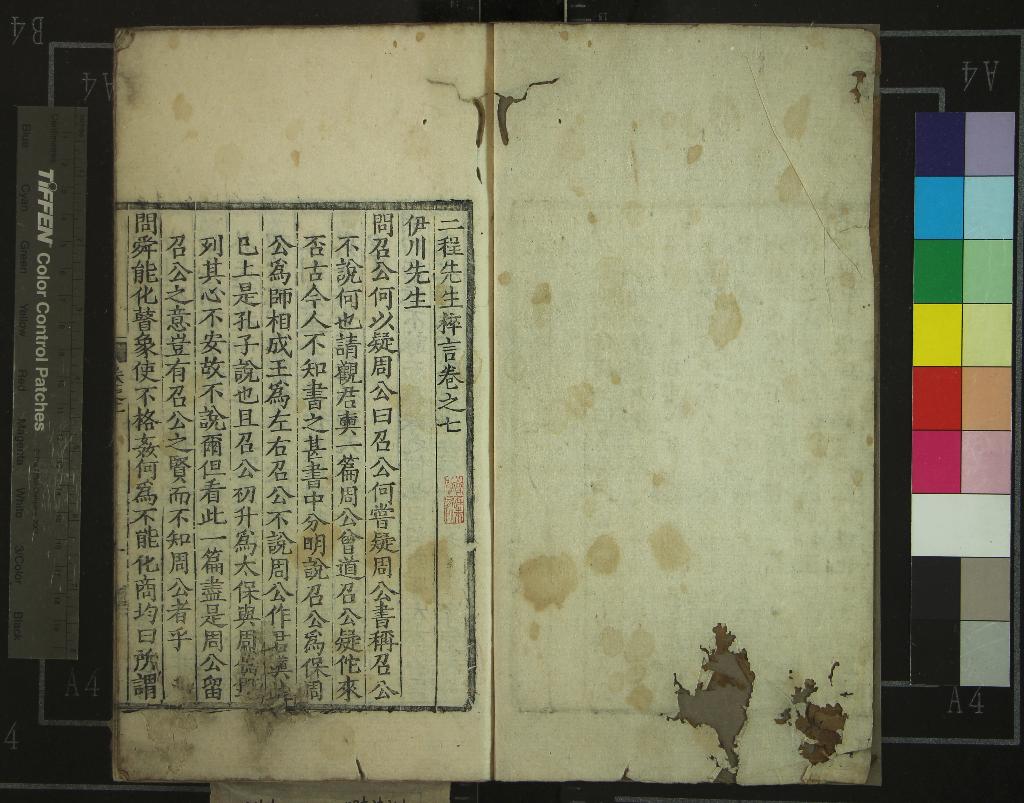 二程先生粹言卷之七
伊川先生
問召公何以疑周公曰召公何嘗疑周公書稱召公
不說何也請觀君奭一篇周公曾道召公疑佗來
否古今人不知書之甚書中分明說召公爲保周
公爲師相成王爲左右召公不說周公作君奭
已上是孔子說也且召公初升爲太保與周
列其心不安故不說爾但看此一篇盡是周公留
召公之意豈有召公之賢而不知周公者乎
問舜能化瞽象使不格姦何爲不能化商均曰所謂
TIFFEN Color Control Patches
Blue Cyan Green Yellow Red Magenta White 3/Color Black
A4
A4
A4
A4
B4
4